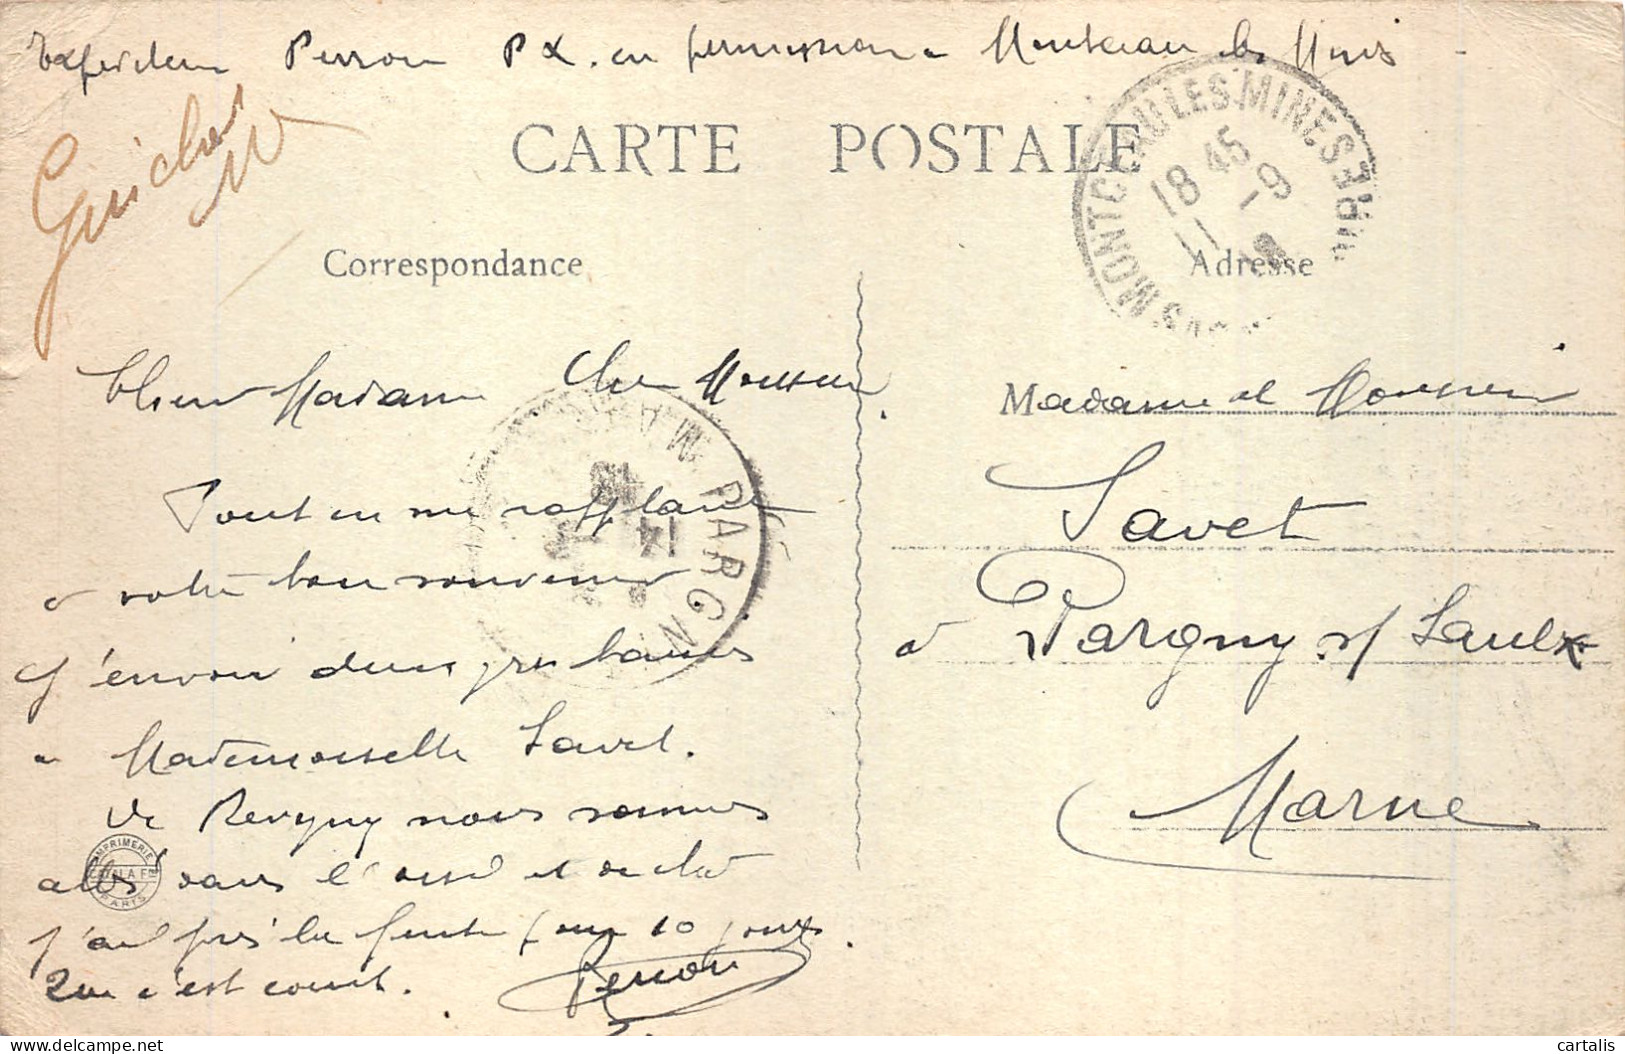 Expediteur Perron P X. en permission a Montceau les Mines
Guichet
CARTE POSTALE
MONTCEAU LES MINES
18 45
11 - 9
Correspondance
Adresse
Chere Madame Cher Monsieur
Madame et Monsieur
Tout en me rappelant
Savet
PARGNY
MARNE
14
a votre bon souvenir
à Pargny s/ Saulx
J'envoie deux gros baisers
a Mademoiselle Savet.
Marne
De Revigny nous sommes
IMPRIMERIE
PARIS
allés dans l'Oise et de là
j'ai pris la fuite pour 10 jours.
Que c'est court. Perron